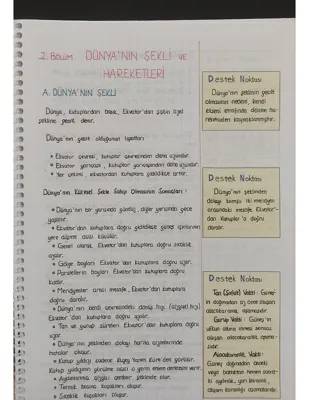 2. BÖLÜM DÜNYA'NIN ŞEKLİ VE
HAREKETLERİ
A. DÜNYA'NIN ŞEKLİ
Dünya, kutuplardan basık, Ekvator'dan şişkin özel
şekline geoit denir.
Dünya'nın geoit olduğunun ispatları
• Ekvator çevresi, kutuplar çevresinden daha uzundur.
• Ekvator yarıçapı, kutuplar yarıçapından daha uzundur.
• Yer çekimi, ekvatordan kutuplara gidildikçe artar.
Dünya'nın Küresel Şekle Sahip Olmasının Sonuçları:
• Dünya'nın bir yarısında gündüz, diğer yarısında gece
yaşanır.
• Ekvator'dan kutuplara doğru gidildikçe güneş ışınlarının
yere düşme açısı küçülür.
• Genel olarak, Ekvator'dan kutuplara doğru sıcaklık
azalır.
• Gölge boyları Ekvator'dan kutuplara doğru uzar.
• Paralellerin boyları Ekvator'dan kutuplara doğru
kısalır.
• Meridyenler arası mesafe, Ekvator'dan kutuplara
doğru daralır.
• Dünya'nın kendi çevresindeki dönüş hızı (çizgisel hız)
Ekvator'dan kutuplara doğru azalır.
• Tan ve gurup süreleri Ekvator'dan kutuplara doğru
uzar.
• Dünya'nın şeklinden dolayı harita çizimlerinde
hatalar oluşur.
• Kutup yıldızı sadece Kuzey Yarım Küre'den görülür.
Kutup yıldızının görünüm açısı o yerin enlem derecesini verir.
• Aydınlanma çizgisi çember şeklinde olur.
• Termik basınç kuşakları oluşur.
• Sıcaklık kuşakları oluşur.
Destek Noktası
Dünya'nın şeklinin geoit
olmasının nedeni, kendi
ekseni etrafında dönme ha-
reketinden kaynaklanmıştır.
Destek Noktası
Dünya'nın şeklinden
dolayı komşu iki meridyen
arasındaki mesafe Ekvator'-
dan Kutuplar'a doğru
daralır.
Destek Noktası
Tan (Şafak) Vakti: Güneş'-
in doğmadan az önce oluşan
alacakaranlık aşamasıdır.
Gurup Vakti: Güneş'in
ufkun altına inmesi sonucu
oluşan alacakaranlık aşama-
sıdır.
Alacakaranlık Vakti:
Güneş doğmadan önceki
veya battıktan hemen sonra-
ki aydınlık, yarı karanlık,